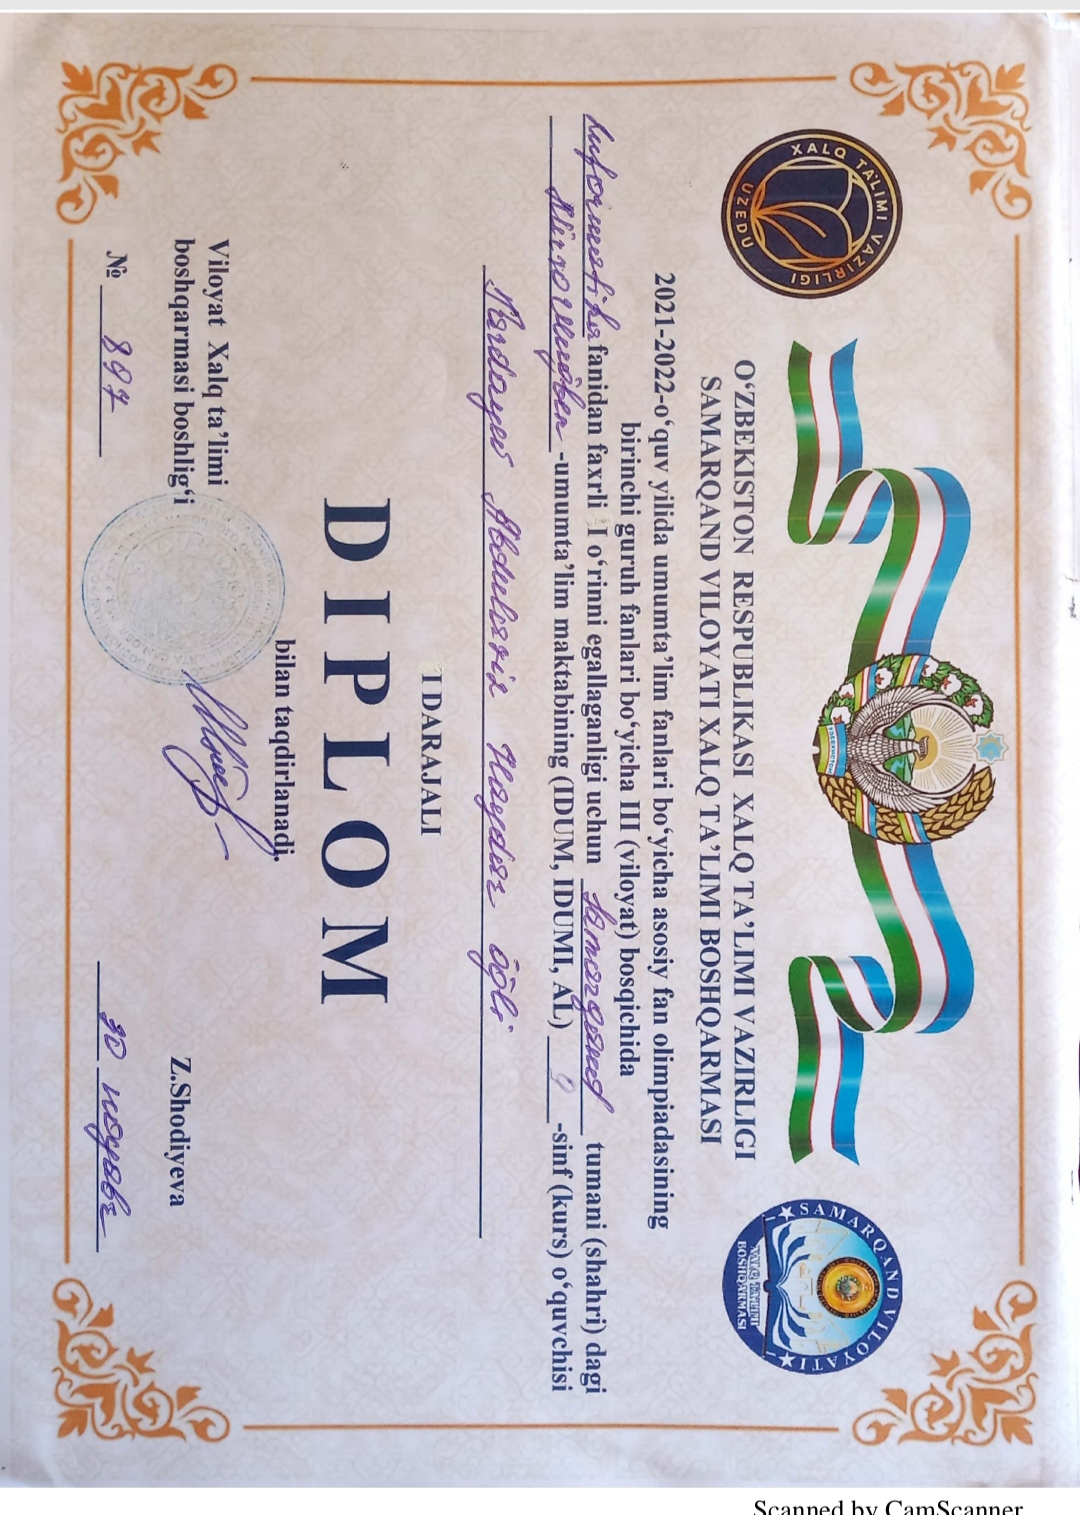 XALQ TA'LIMI VAZIRLIGI
UZEDU
SAMARQAND VILOYATI
XALQ TA'LIMI
BOSHQARMASI
O‘ZBEKISTON RESPUBLIKASI XALQ TA’LIMI VAZIRLIGI
SAMARQAND VILOYATI XALQ TA’LIMI BOSHQARMASI
2021-2022-o‘quv yilida umumta’lim fanlari bo‘yicha asosiy fan olimpiadasining
birinchi guruh fanlari bo‘yicha III (viloyat) bosqichida
informatika fanidan faxrli I o‘rinni egallaganligi uchun Samarqand tumani (shahri) dagi
-umumta’lim maktabining (IDUM, IDUMI, AL) 9 -sinf (kurs) o‘quvchisi
Abdulaziz Haydar o‘g‘li
I DARAJALI
DIPLOM
bilan taqdirlanadi.
Viloyat Xalq ta’limi
boshqarmasi boshlig‘i
Z.Shodiyeva
№ 897
30
Scanned by CamScanner